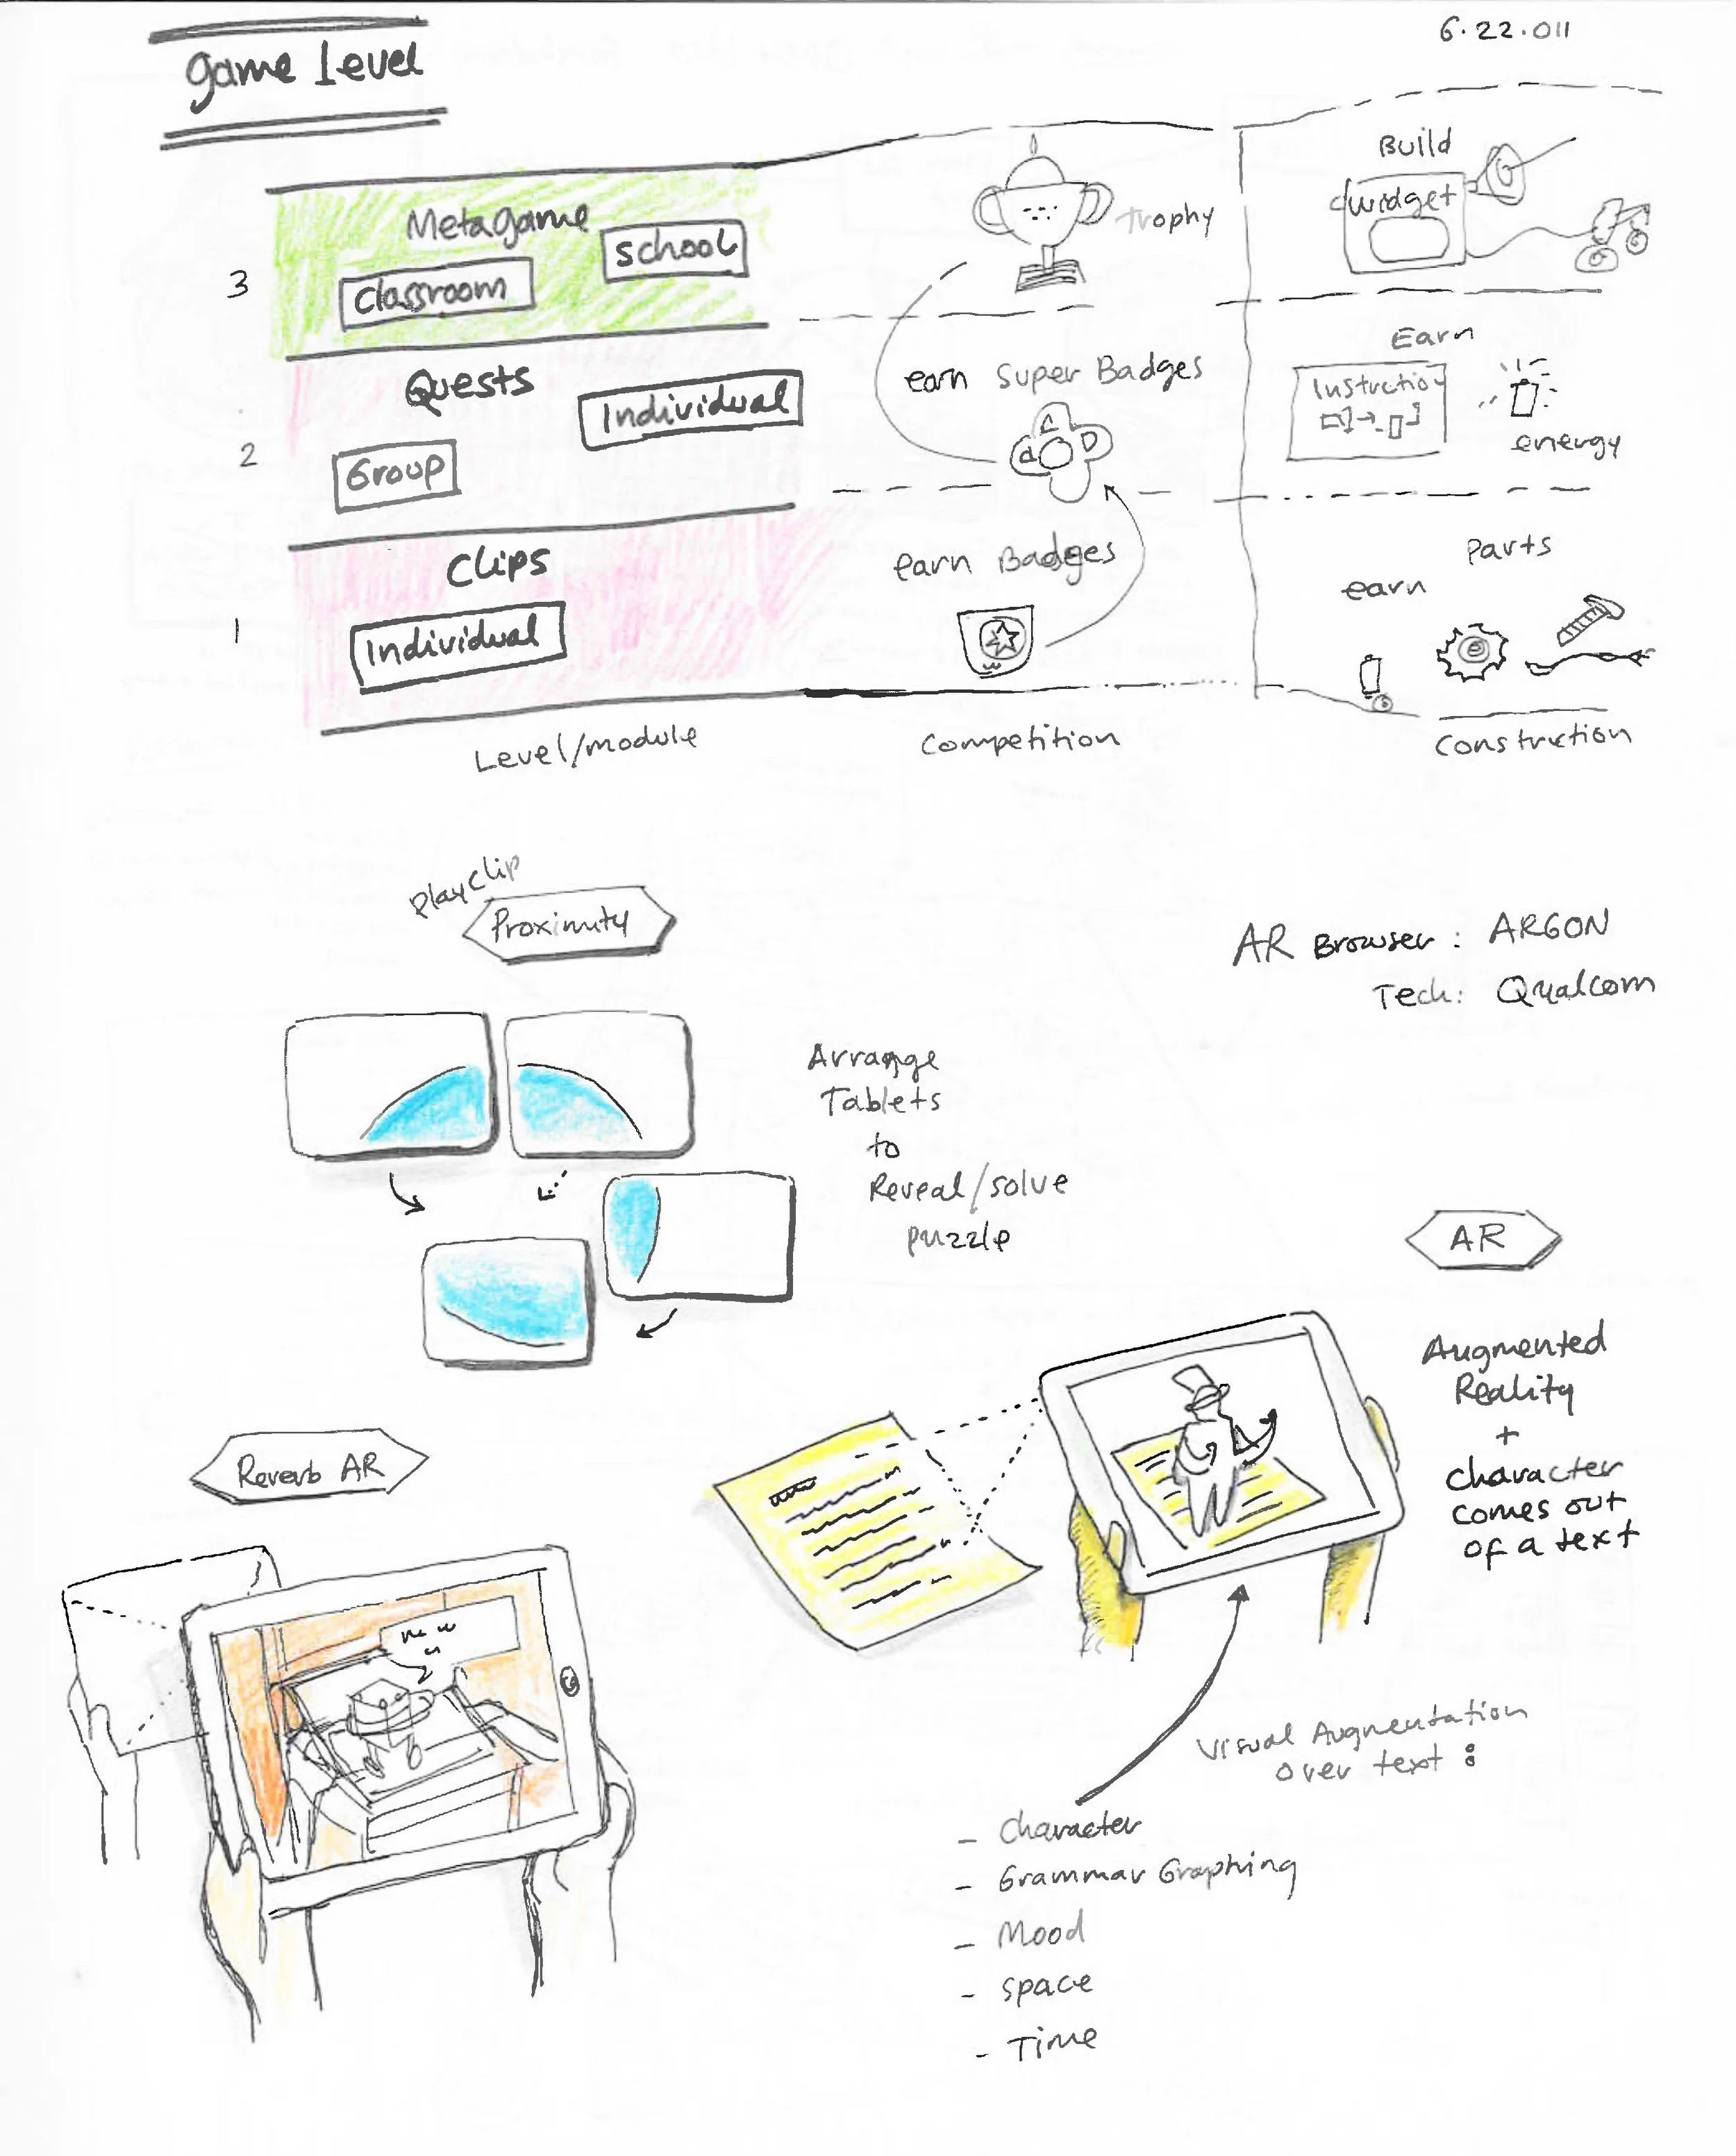 game level
6.22.011
3
Metagame
school
classroom
trophy
Build
widget
2
Quests
Individual
Group
earn Super Badges
Earn
Instruction
energy
1
Clips
Individual
earn Badges
Parts
earn
Level/module
Competition
Construction
play clip
Proximity
AR Browser: ARGON
Tech: Qualcom
Arrange
Tablets
to
Reveal/solve
puzzle
AR
Augmented
Reality
+
character
comes out
of a text
Reverb AR
Visual Augmentation
over text:
- Character
- Grammar Graphing
- Mood
- Space
- Time